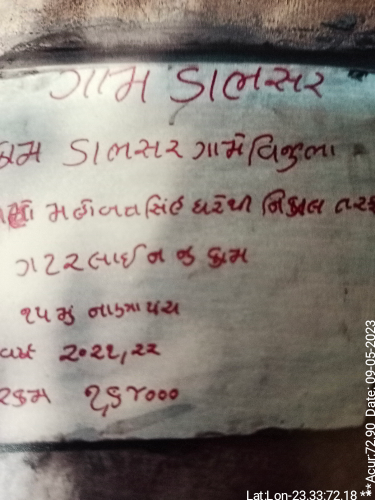 ગામ ડાભસર
કામ ડાભસર ગામે વિજુભા
મહોબતસિંહ ઘરેથી નિકાલ તરફ
ગટરલાઈન નુ કામ
૧૫મુ નાણાપંચ
વર્ષ ૨૦૨૧,૨૨
રકમ ૧,૬૪૦૦૦
Lat:Lon-23.33:72.18 ***Acur:72.90 Date: 09-05-2023